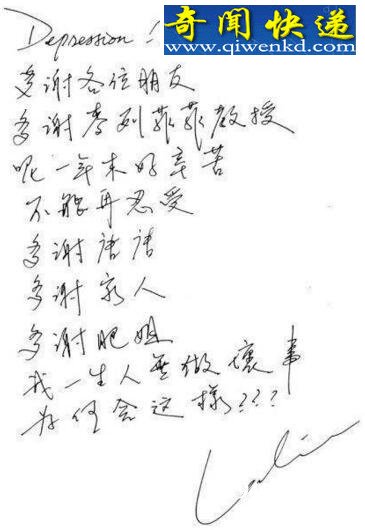 Depression!
奇闻快递
www.qiwenkd.com
多谢各位朋友
多谢麦列菲菲教授
呢一年来好辛苦
不能再忍受
多谢唐唐
多谢家人
多谢肥姐
我一生人无做坏事
为何会这样???
Leslie